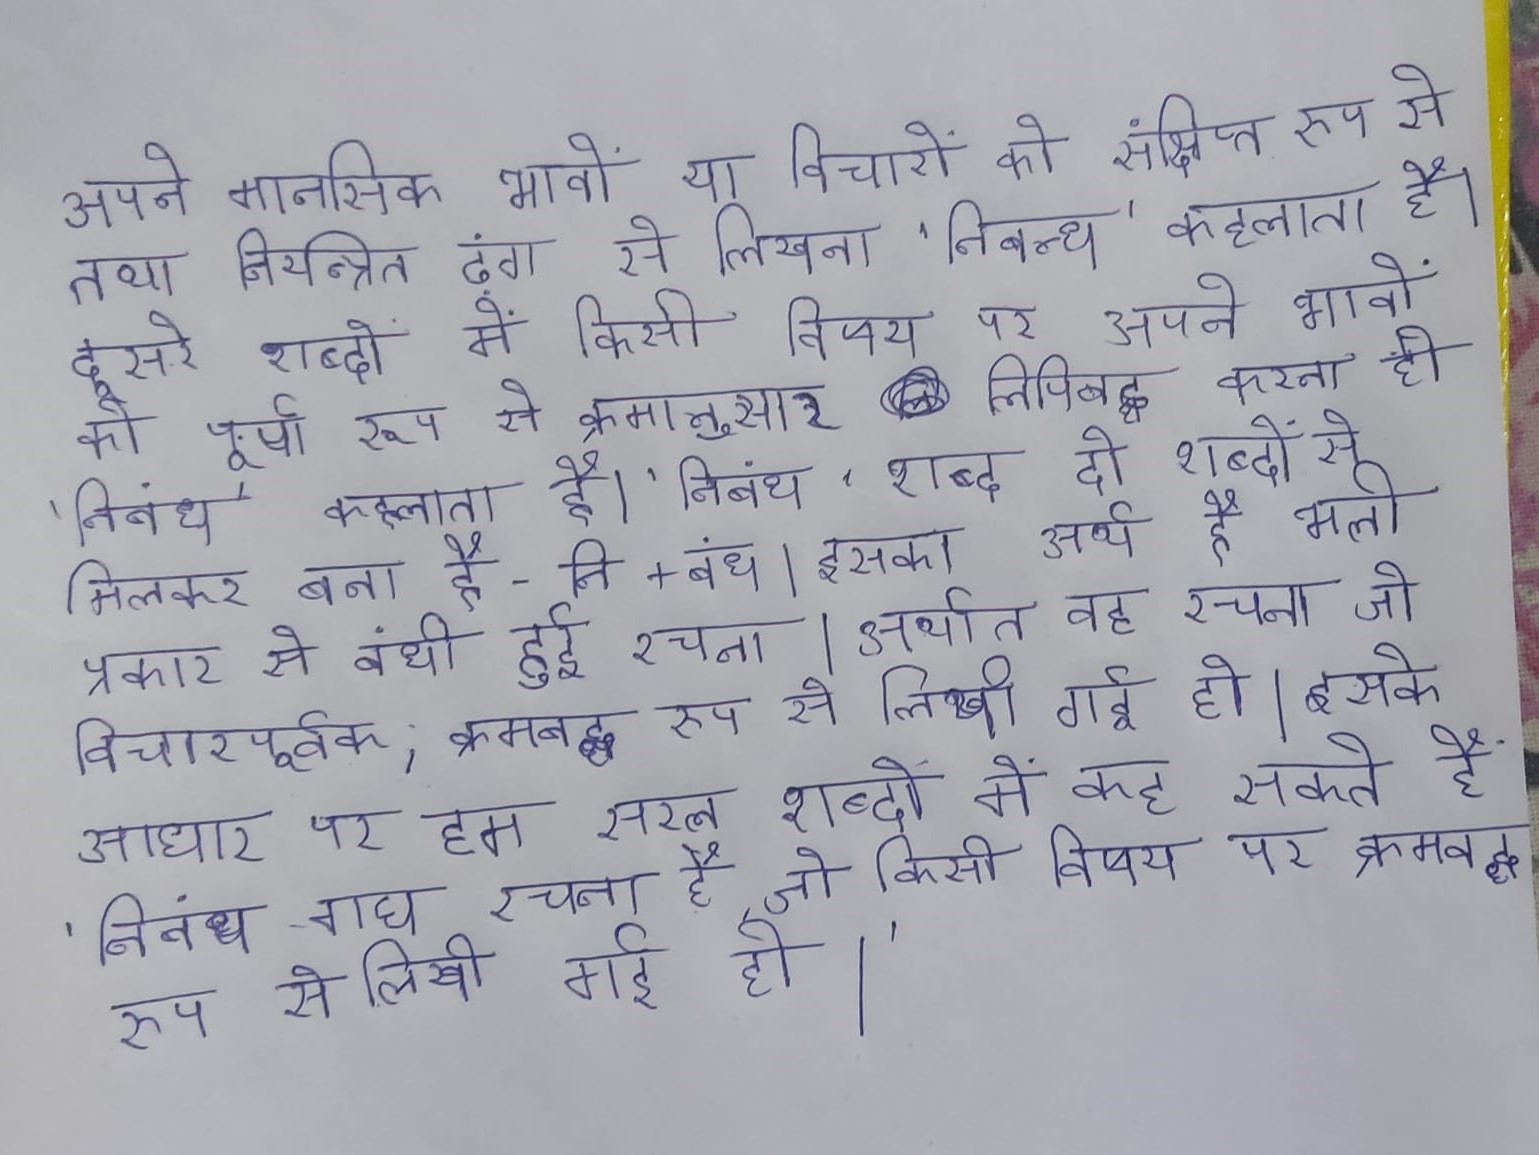 अपने मानसिक भावों या विचारों को संक्षिप्त रूप से
तथा नियन्त्रित ढंग से लिखना 'निबन्ध' कहलाता है।
दूसरे शब्दों में किसी विषय पर अपने भावों
को पूर्ण रूप से क्रमानुसार लिपिबद्ध करना ही
'निबंध' कहलाता है। 'निबंध' शब्द दो शब्दों से
मिलकर बना है - नि + बंध। इसका अर्थ है भली
प्रकार से बंधी हुई रचना। अर्थात वह रचना जो
विचारपूर्वक, क्रमबद्ध रूप से लिखी गई हो। इसके
आधार पर हम सरल शब्दों में कह सकते हैं
'निबंध गद्य रचना है, जो किसी विषय पर क्रमबद्ध
रूप से लिखी गई हो।'